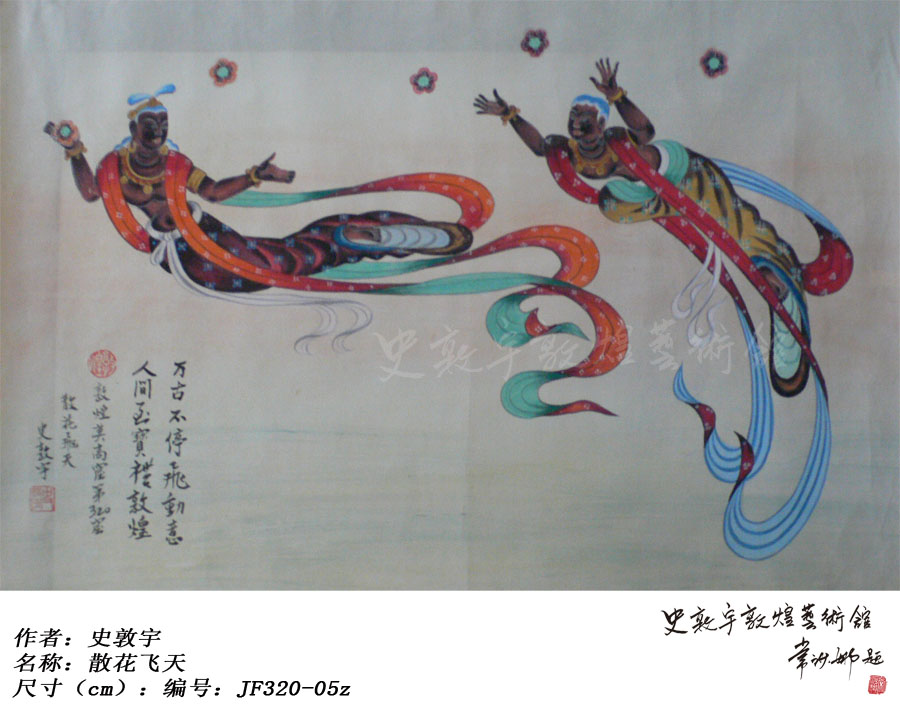 万古不停飛動意
人间至寶礼敦煌
敦煌莫高窟第320窟
散花飛天
史敦宇
史敦宇敦煌藝術館
作者：史敦宇
名称：散花飞天
尺寸（cm）：编号：JF320-05z
史敦宇敦煌藝術館
常沙娜题